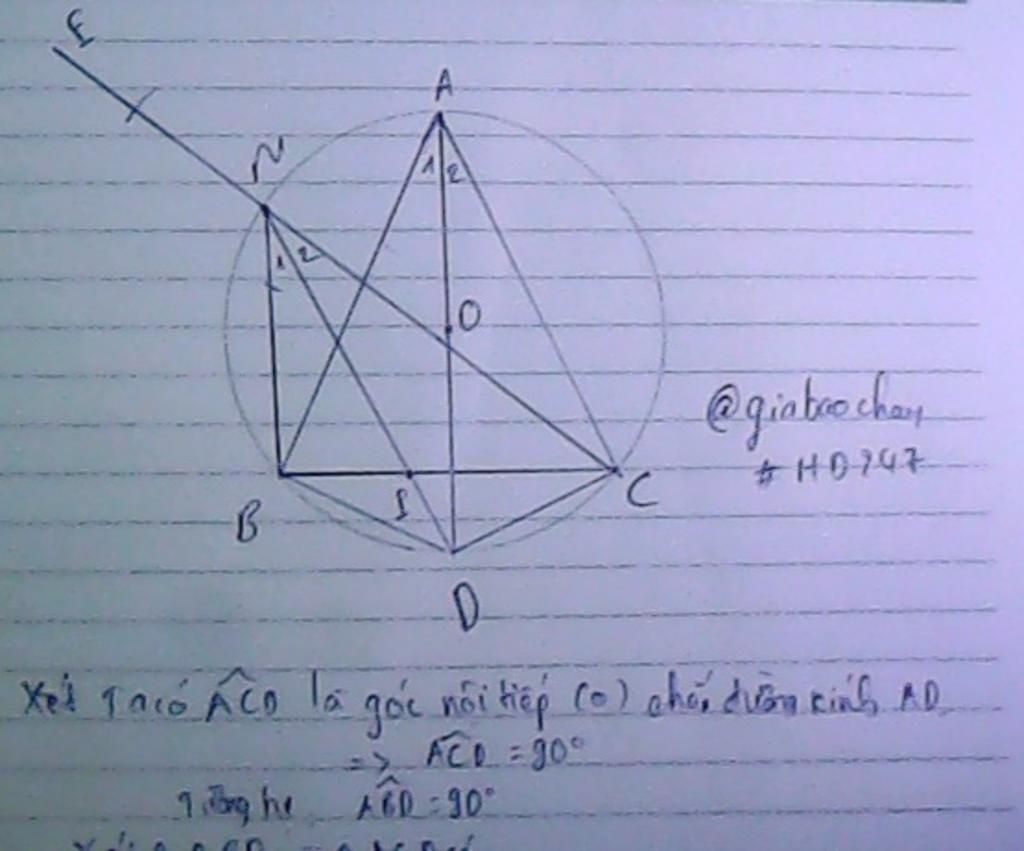 E
A
N
1 2
1 2
O
@giabaochay
# HD247
B
I
C
D
Xét Ta có ACD là góc nội tiếp (O) chắn đường kính AD
=> ACD = 90°
Tương tự ABD = 90°